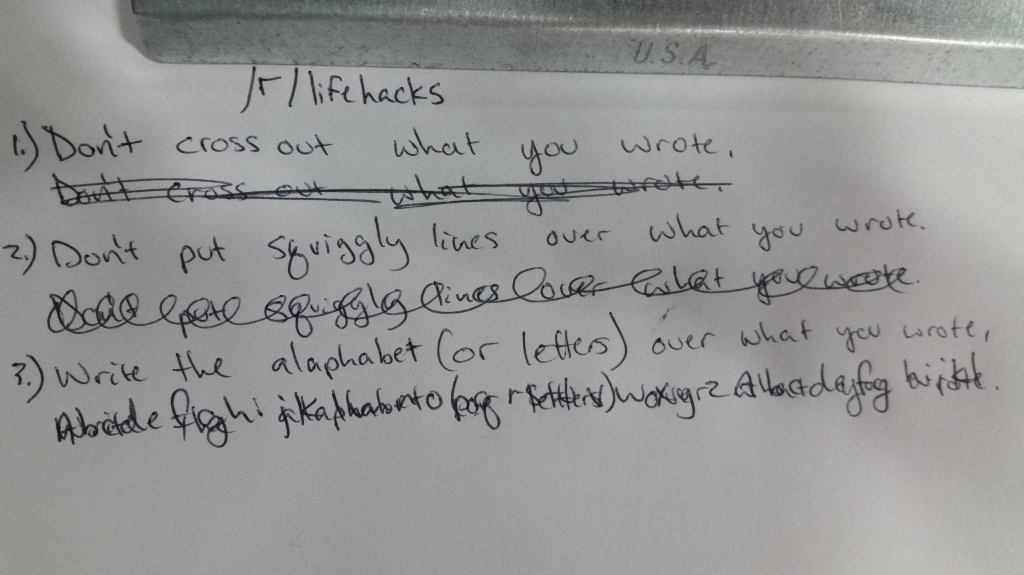 U.S.A.
/r/lifehacks
1.) Don't cross out what you wrote.
Don't cross out what you wrote.
2.) Don't put squiggly lines over what you wrote.
squiggly lines over what you wrote.
3.) Write the alaphabet (or letters) over what you wrote,